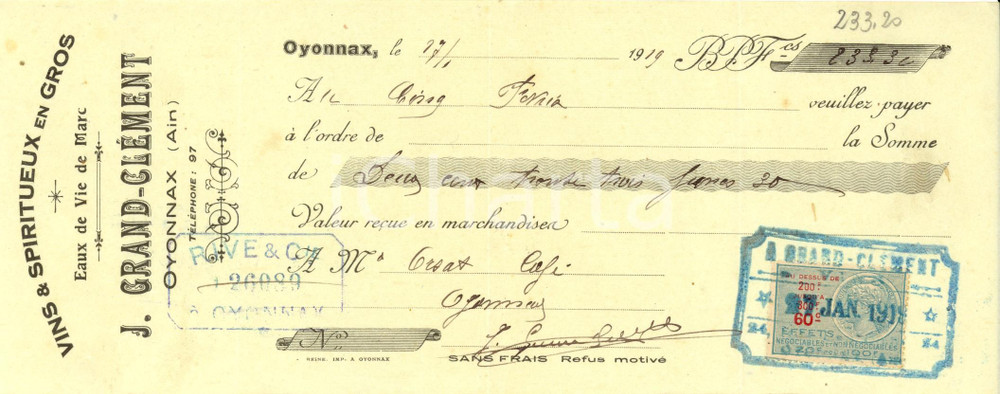 233.20
VINS & SPIRITUEUX EN GROS
Eaux de Vie de Marc
J. GRAND-CLÉMENT
OYONNAX (Ain)
TÉLÉPHONE : 97
Oyonnax, le 27/1 1919 B.P.F.cs 233.20
Au Cinq Février veuillez payer
à l'ordre de la Somme
de Deux cent trente trois francs 20
Valeur reçue en marchandises
A Mr Orsat Café
Oyonnax
No
SANS FRAIS Refus motivé
REINE. IMP. A OYONNAX
RIVE & Cie
26089
A OYONNAX
GRAND-CLÉMENT
AU DESSUS DE
200F
60c
27 JAN. 1919
24 24
EFFETS
NÉGOCIABLES ET NON NÉGOCIABLES
Charta